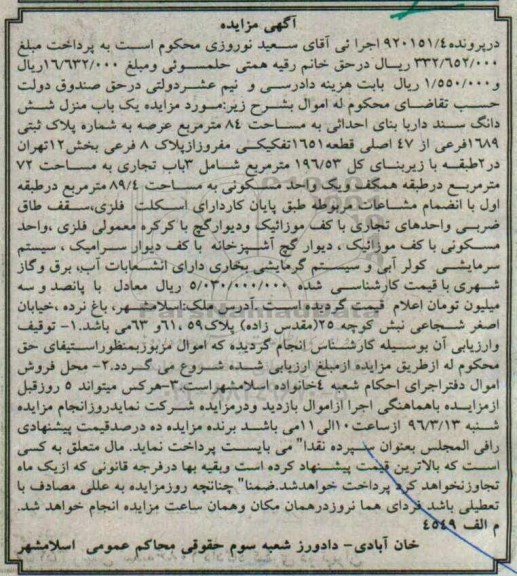 آگهی مزایده
درپرونده۹۲۰۱۵۱/۴ اجرا ئی آقای سعید نوروزی محکوم است به پرداخت مبلغ
۳۳۲/۶۵۲/۰۰۰ ریال درحق خانم رقیه همتی حلمسوئی ومبلغ ۱۶/۶۳۲/۰۰۰ریال
و۱/۵۵۰/۰۰۰ ریال بابت هزینه دادرسی و نیم عشردولتی درحق صندوق دولت
حسب تقاضای محکوم له اموال بشرح زیر:مورد مزایده یک باب منزل شش
دانگ سند داربا بنای احداثی به مساحت ۸۴ مترمربع عرصه به شماره پلاک ثبتی
۱۶۸۹فرعی از ۴۷ اصلی قطعه۱۶۵۱تفکیکی مفروزازپلاک ۸ فرعی بخش۱۲تهران
در۲طبقه با زیربنای کل ۱۹۶/۵۳ مترمربع شامل ۳باب تجاری به مساحت ۷۲
مترمربع درطبقه همکف ویک واحد مسکونی به مساحت ۸۹/۴ مترمربع درطبقه
اول با انضمام مشاعات مربوطه طبق پایان کاردارای اسکلت فلزی،سقف طاق
ضربی واحدهای تجاری با کف موزائیک ودیوارگچ با کرکره معمولی فلزی ،واحد
مسکونی با کف موزائیک ، دیوار گچ آشپزخانه با کف دیوار سرامیک ، سیستم
سرمایشی کولر آبی و سیستم گرمایشی بخاری دارای انشعابات آب، برق وگاز
شهری با قیمت کارشناسی شده ۵/۰۳۰/۰۰۰/۰۰۰ ریال معادل با پانصد و سه
میلیون تومان اعلام قیمت گردیده است .آدرس ملک:اسلامشهر، باغ نرده ،خیابان
اصغر شجاعی نبش کوچه ۲۵(مقدس زاده) پلاک۵۹ ،۶۱و ۶۳می باشد.۱- توقیف
وارزیابی آن بوسیله کارشناس انجام گردیده که اموال مزبوربمنظوراستیفای حق
محکوم له ازطریق مزایده ازمبلغ ارزیابی شده شروع می گردد.۲- محل فروش
اموال دفتراجرای احکام شعبه ۴خانواده اسلامشهراست.۳-هرکس میتواند ۵ روزقبل
ازمزایده باهماهنگی اجرا ازاموال بازدید ودرمزایده شرکت نمایدروزانجام مزایده
شنبه ۹۶/۳/۱۳ ازساعت۱۰الی۱۱می باشد برنده مزایده ده درصدقیمت پیشنهادی
رافی المجلس بعنوان سپرده نقدا" می بایست پرداخت نماید. مال متعلق به کسی
است که بالاترین قیمت پیشنهاد کرده است وبقیه بها درفرجه قانونی که ازیک ماه
تجاوزنخواهد کرد پرداخت خواهدشد.ضمنا" چنانچه روزمزایده به عللی مصادف با
تعطیلی باشد فردای هما نروزدرهمان مکان وهمان ساعت مزایده انجام خواهد شد.
م الف ۴۵۴۹
خان آبادی- دادورز شعبه سوم حقوقی محاکم عمومی اسلامشهر